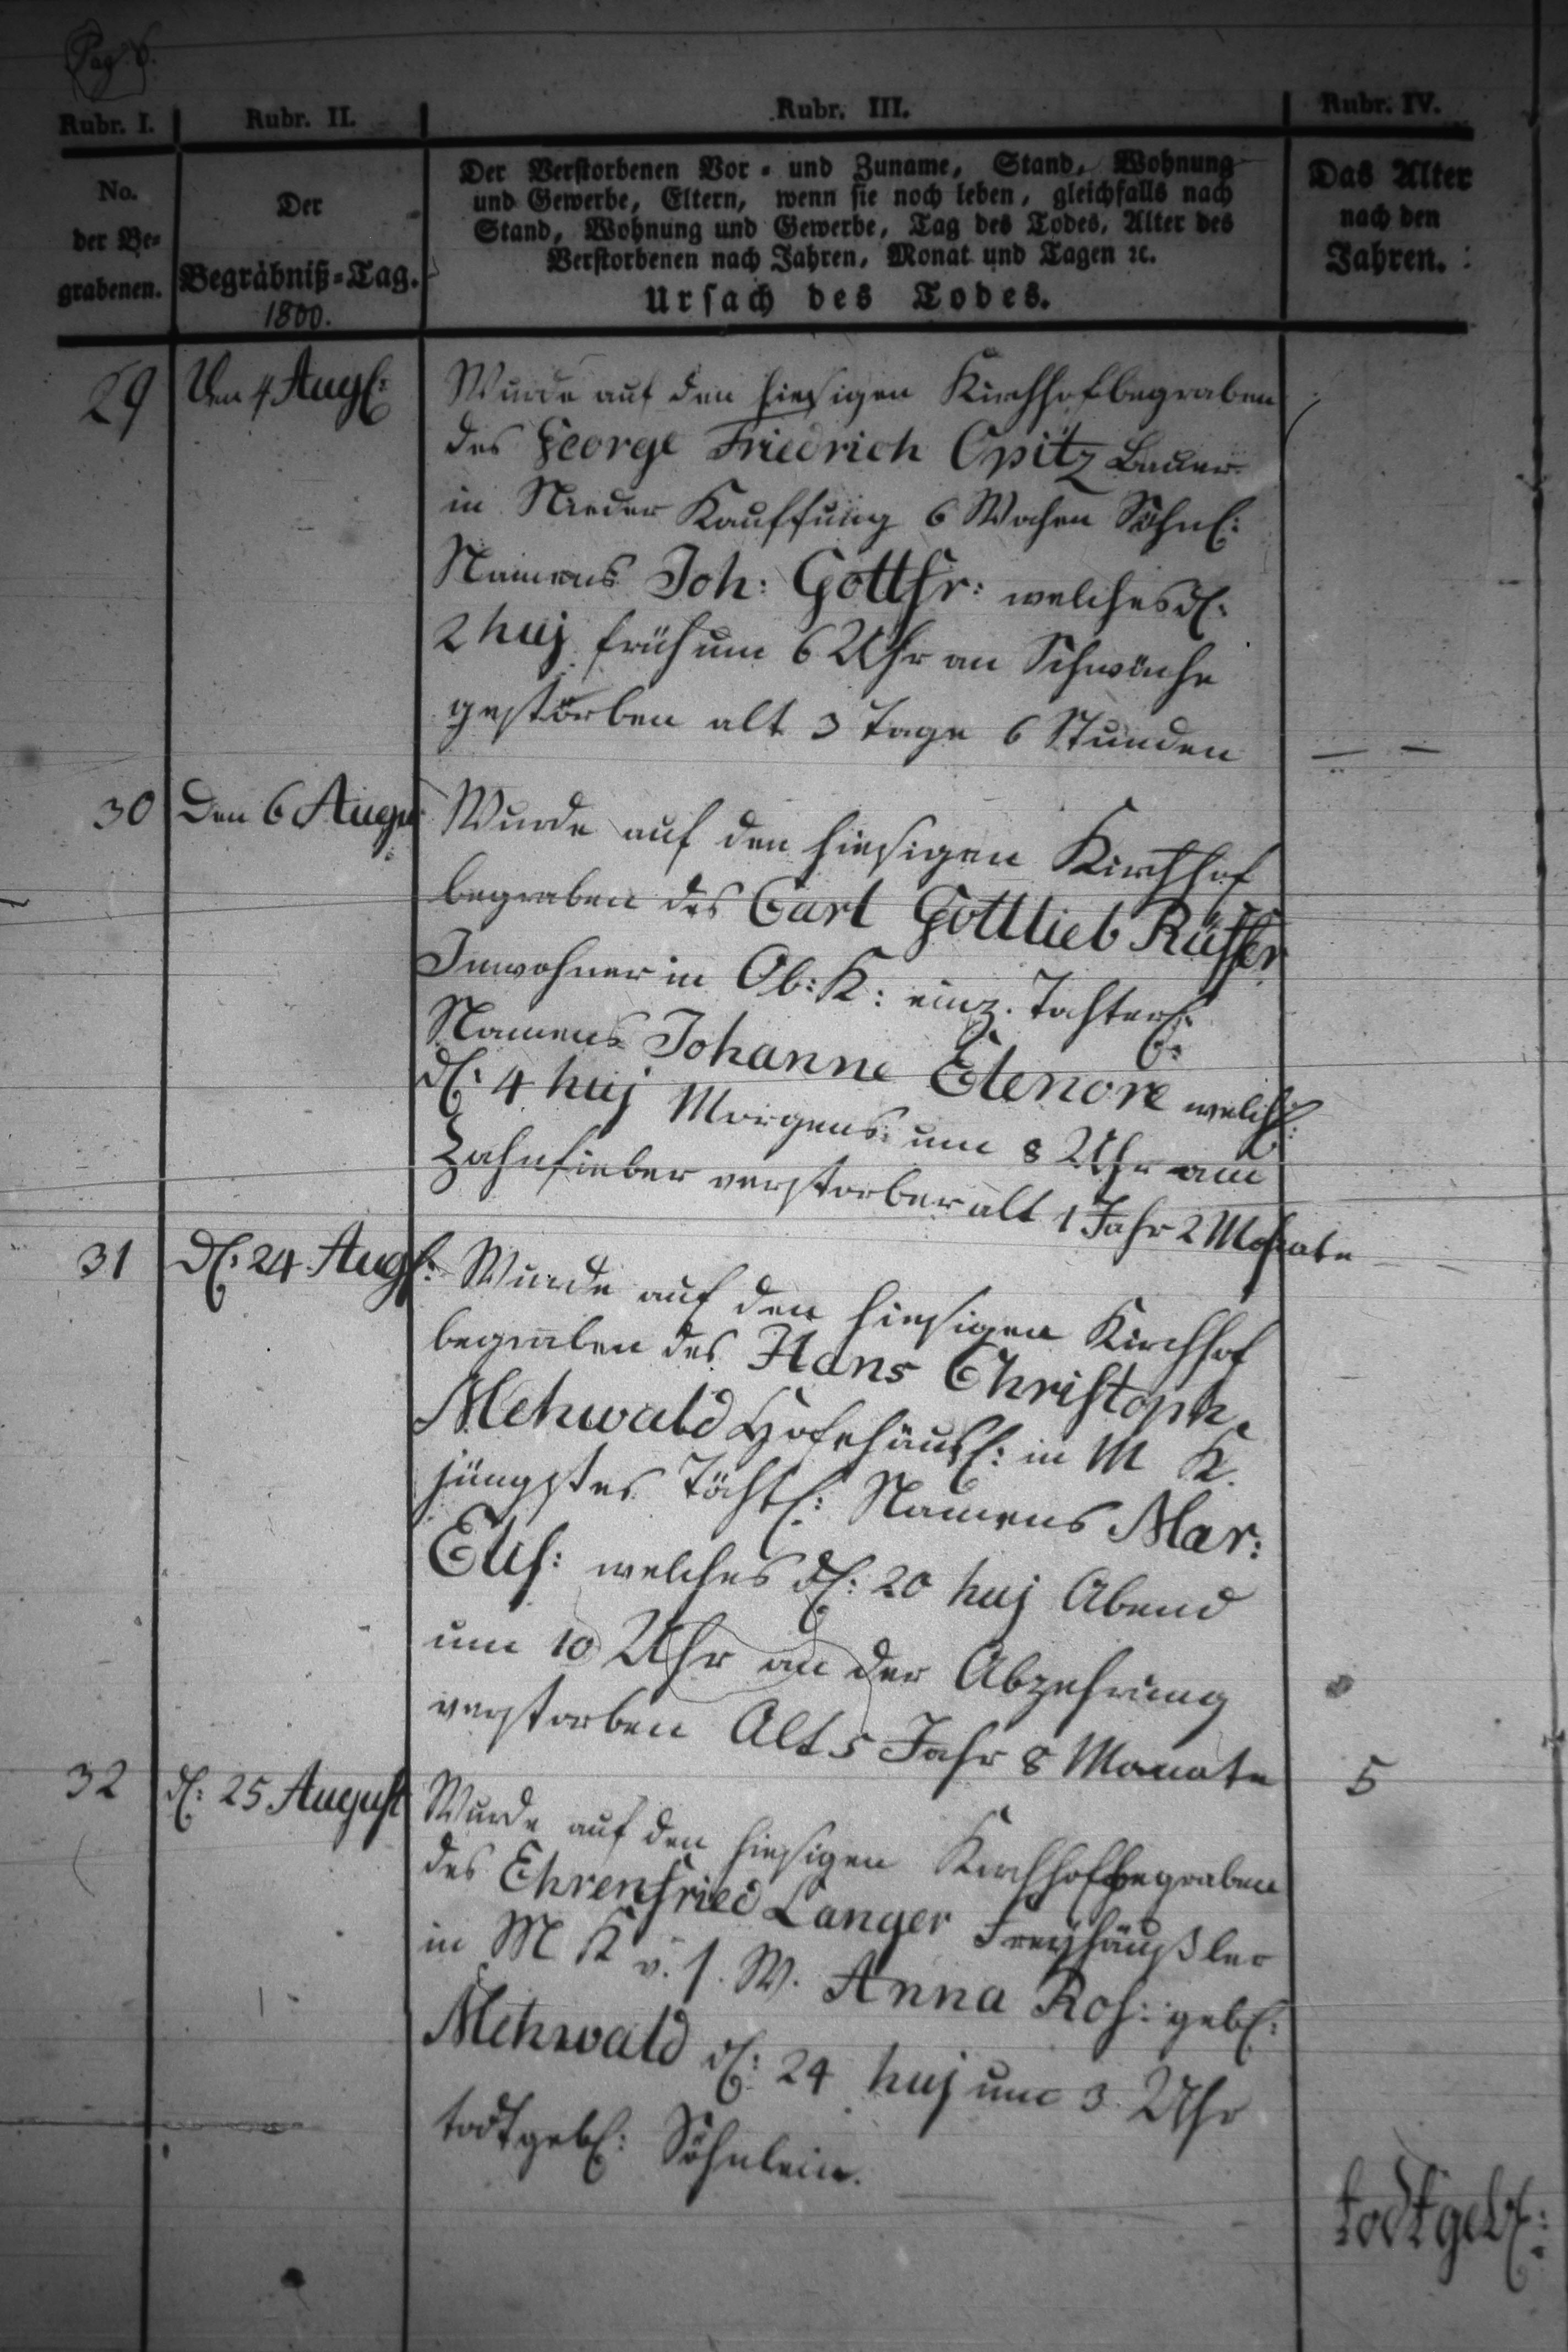 Pag. 6.
Rubr. I. Rubr. II. Rubr. III. Rubr. IV.
No. der Be- grabenen.
Der Begräbniß-Tag. 1800.
Der Verstorbenen Vor- und Zuname, Stand, Wohnung
und Gewerbe, Eltern, wenn sie noch leben, gleichfalls nach
Stand, Wohnung und Gewerbe, Tag des Todes, Alter des
Verstorbenen nach Jahren, Monat und Tagen ꝛc.
Ursach des Todes.
Das Alter
nach den
Jahren.
29 Den 4 Aug: Wurde auf den hiesigen Kirchhof begraben
des George Friedrich Opitz Bauer
in Nieder Kauffung 6 Wochen Söhnl:
Namens Joh: Gottfr: welches d:
2 huj früh um 6 Uhr an Schwäche
gestorben alt 3 Tage 6 Stunden — —
30 Den 6 Augu Wurde auf den hiesigen Kirchhof
begraben des Carl Gottlieb Rüffer
Inwohner in Ob: K: einz. Tochterl:
Namens Johanne Elenore welch:
d: 4 huj Morgens um 8 Uhr am
Zahnfieber verstorben alt 1 Jahr 2 Monate
31 d: 24 Aug: Wurde auf den hiesigen Kirchhof
begraben des Hans Christoph
Mehwald Hofehäusl: in M K.
jüngstes Töchtl: Namens Mar:
Elis: welches d: 20 huj Abend
um 10 Uhr an der Abzehrung
verstorben Alt 5 Jahr 8 Monate 5
32 d: 25 August Wurde auf den hiesigen Kirchhof begraben
des Ehrenfried Langer Freyhäußler
in M K v. s. W. Anna Ros: geb:
Mehwald d: 24 huj um 3 Uhr
todtgeb: Söhnlein.
todtgeb: